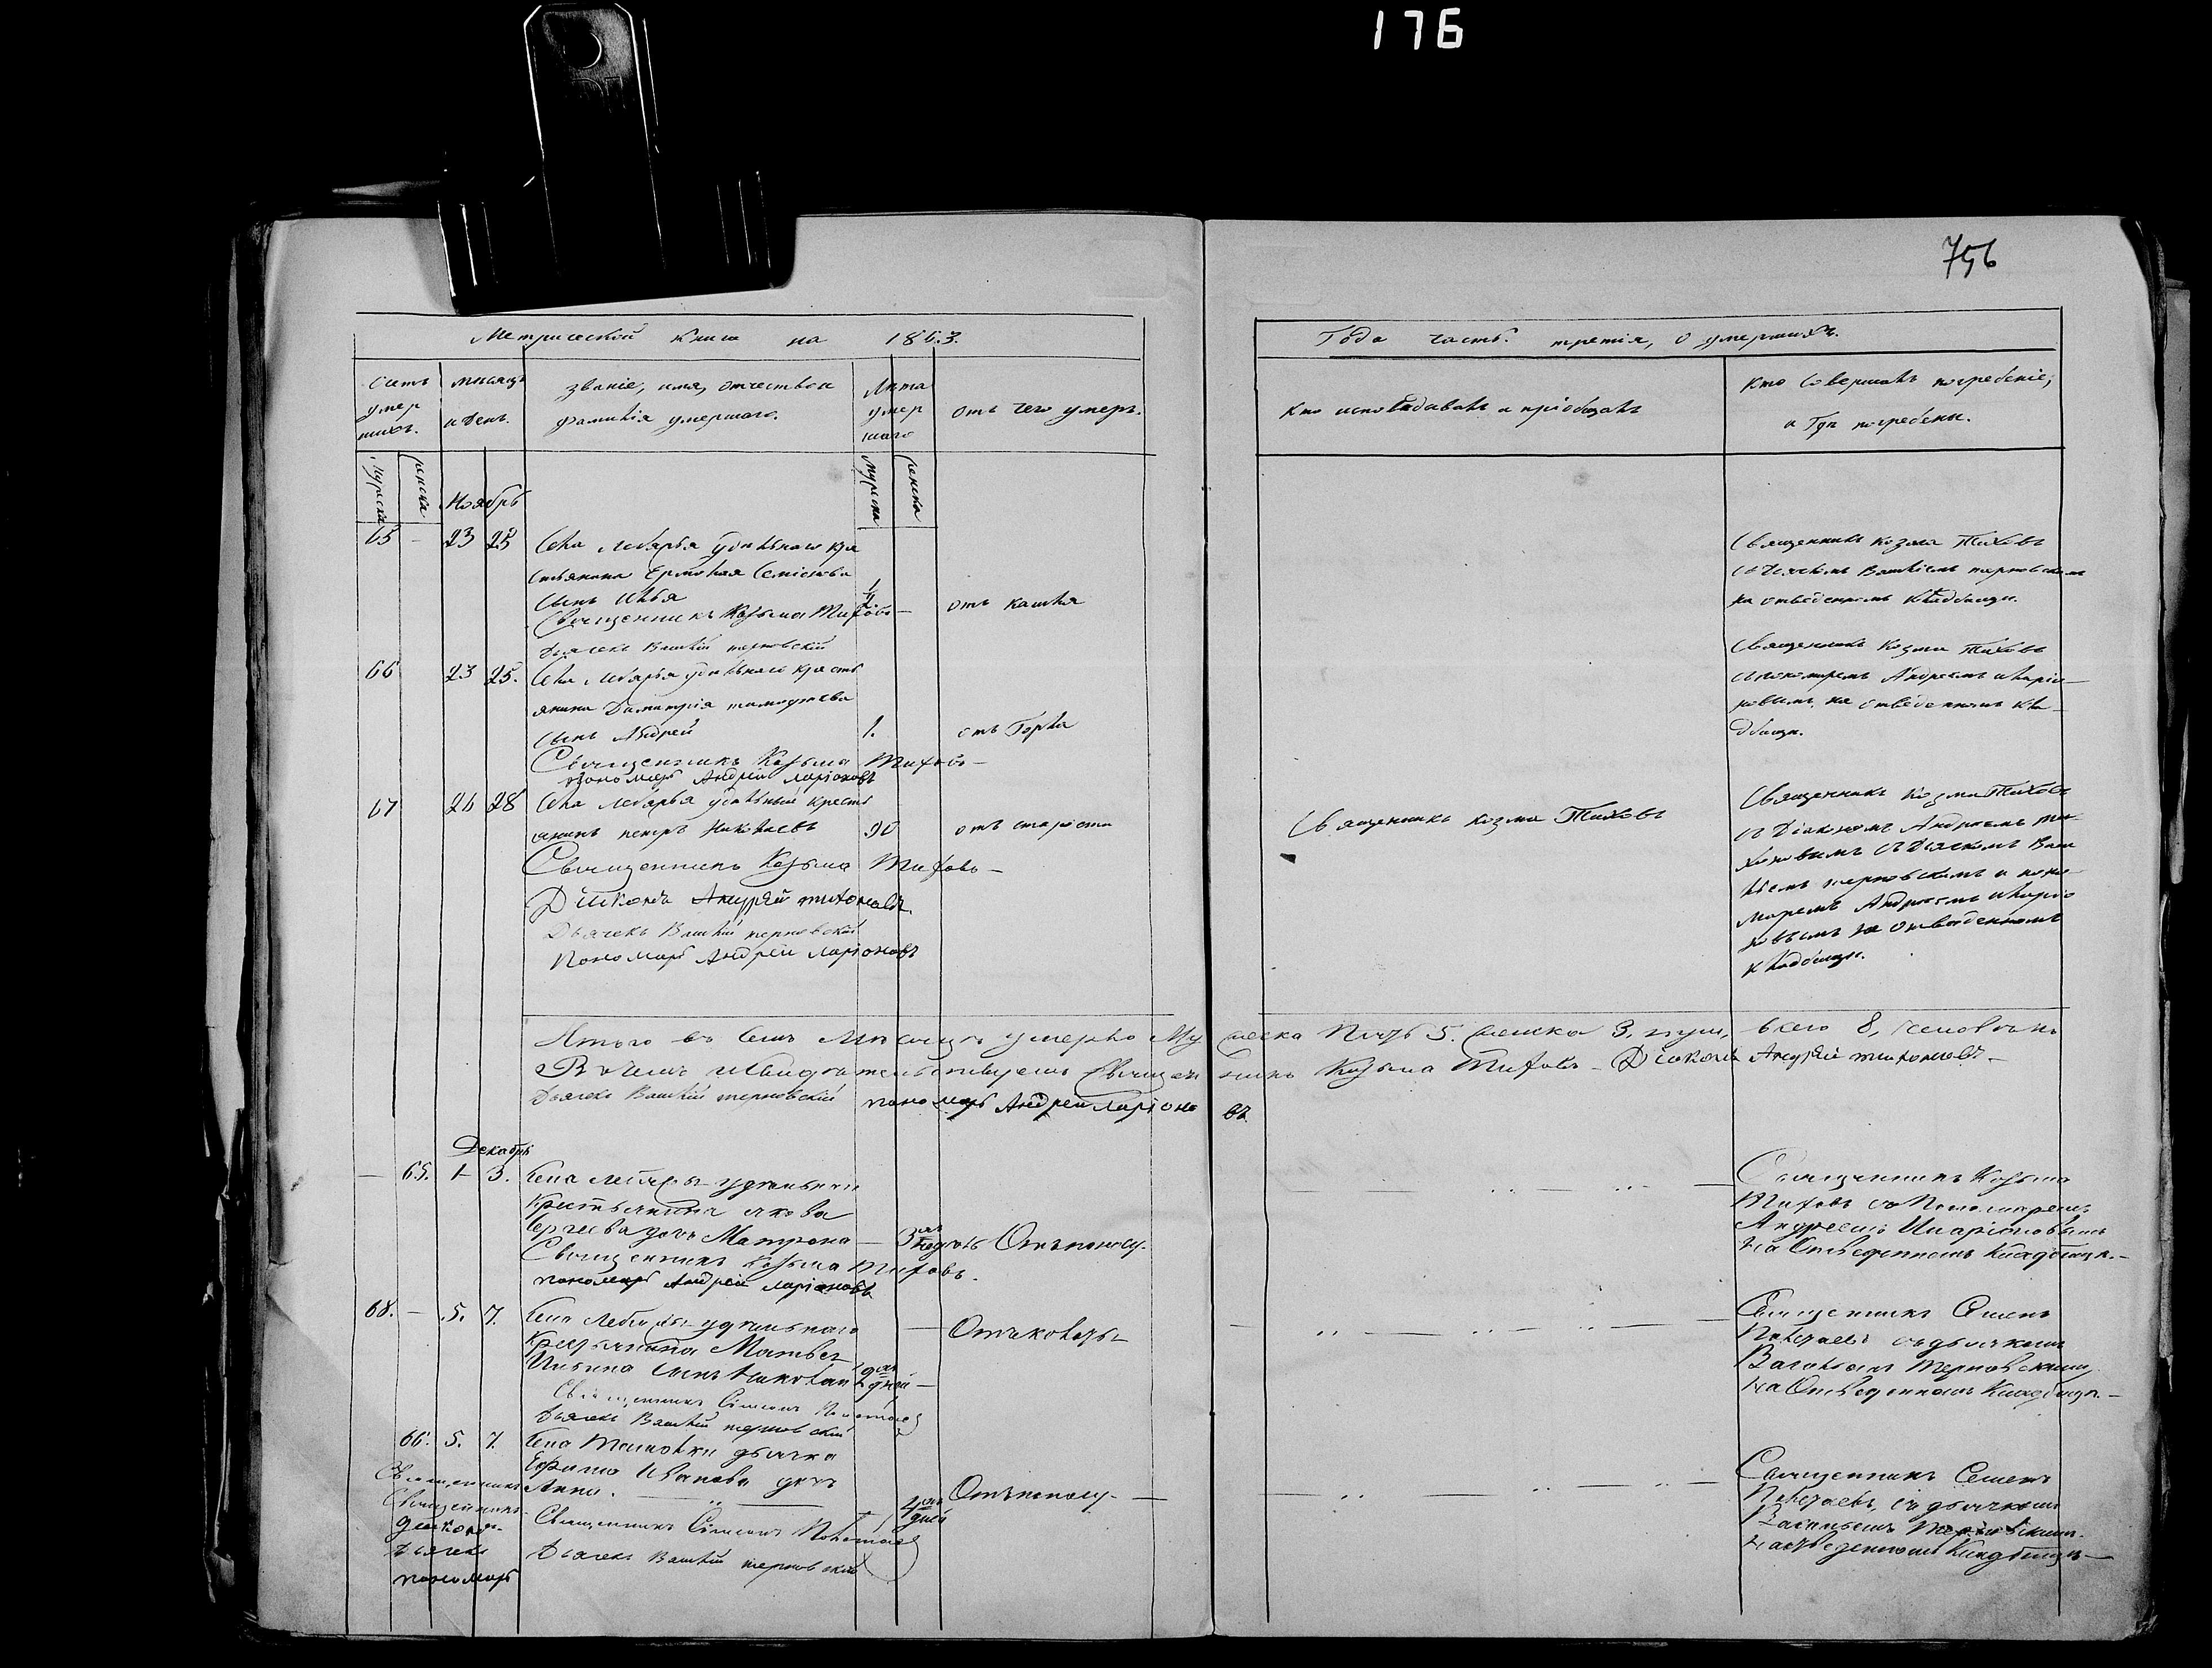 176
756
Метрической книги на 1863.
Года часть третія, о умершихъ.
Счетъ умер шихъ.
мѣсяцъ и день.
званіе, имя, отчество и фамилія умершаго.
Лѣта умер шаго
отъ чего умеръ.
кто исповѣдавалъ и пріобщалъ
кто совершалъ погребеніе,
и гдѣ погребены.
мужска
женска
Ноябрь
мужска
женска
65 - 23 25 Села Лебяжья удѣльнаго кре
стьянина Ермолая
сынъ Илья
отъ кашля
Священникъ Козьма Тиховъ
Дьячекъ Василій терновскій
Священникъ Козма Тиховъ
съ дьячкомъ Василіемъ терновскимъ
на отведенномъ кладбищѣ.
66 23 25. Села Лебяжья удѣльнаго кресть
янина Димитрія
сынъ Андрей 1. отъ горла
Священникъ Козьма Тиховъ
пономарь Андрей ларіоновъ
Священникъ Козма Тиховъ
съ пономаремъ Андреемъ иларіо
новымъ, на отведенномъ кла
дбищѣ.
67 26 28 Села Лебяжья удѣльный кресть
янинъ петръ Николаевъ 90 отъ старости
Священникъ Козьма Тиховъ
Діаконъ Андрей тихоновъ
Дьячекъ Василій терновскій
Пономарь Андрей ларіоновъ
Священникъ козма Тиховъ
Священникъ Козма Тиховъ
съ Діакономъ Андреемъ ти
хоновымъ съ Дьячкомъ Васи
ліемъ терновскимъ и поно
маремъ Андреемъ иларіо
новымъ на отведенномъ
кладбищѣ.
Итого въ семъ мѣсяцѣ умерло мужеска пять 5. женска 3, три, всего 8, человѣкъ
В семъ свидѣтельствуемъ Священникъ Козьма Тиховъ - Діаконъ Андрей тихоновъ
Дьячекъ Василій терновскій пономарь Андрей Ларіоновъ
Декабрь
— 65. 1 3. Села Лебяжья удѣльнаго
Крестьянина Якова
Сергѣева дочь Матрона — 3 недѣль Отъ поносу.
Священникъ Козьма Тиховъ.
пономарь Андрей ларіоновъ
Священникъ Козьма
Тиховъ съ Пономаремъ
Андреемъ Иларіоновымъ
на Отведенномъ Кладбищѣ.
68. — 5. 7. Села Лебяжья удѣльнаго
Крестьянина Матвея
Ильина сынъ Николай дней
Священникъ Сімеонъ
Дьячекъ Василій терновскій
Священникъ Семенъ
съ дьячкомъ
Василіемъ Терновскимъ
на Отведенномъ Кладбищѣ
66. 5. 7. Села дьячка
Ефима Иванова дочь
Анна. 4 дней Отъ поносу
Священникъ Сімеонъ
Дьячекъ Василій терновскій
Священникъ Семенъ
съ дьячкомъ
Васильемъ Терновскимъ
на отведенномъ Кладбищѣ
Священникъ
Священникъ
діаконъ
Дьячекъ
пономарь